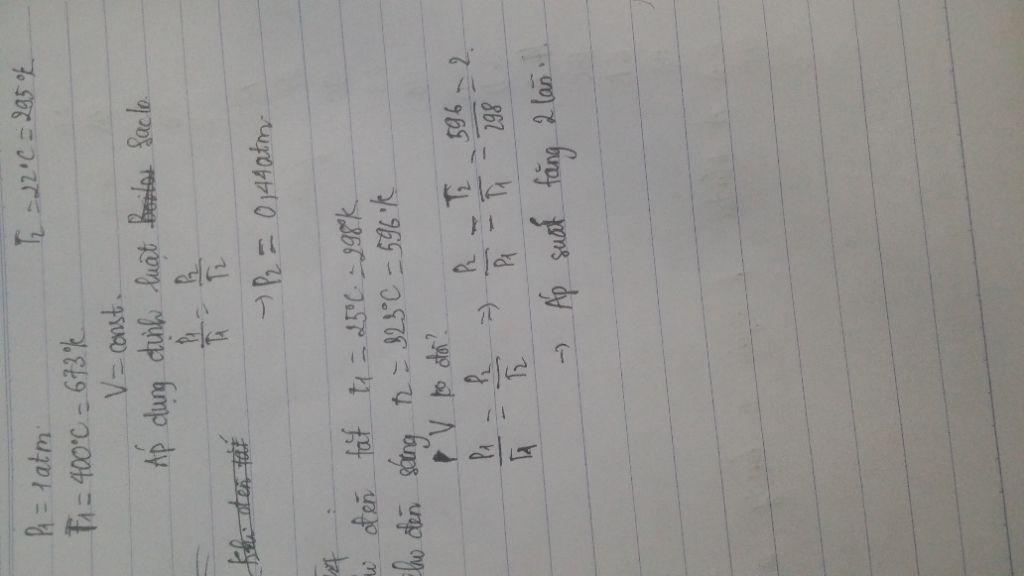 P1 = 1 atm. T2 = 22°C = 295°K
T1 = 400°C = 673°K
V = const.
Áp dụng định luật Saclo
P1/T1 = P2/T2
→ P2 = 0,44 atm.
đèn tắt t1 = 25°C = 298°K
đèn sáng t2 = 323°C = 596°K
V ko đổi.
P1/T1 = P2/T2 => P2/P1 = T2/T1 = 596/298 = 2.
→ Áp suất tăng 2 lần.